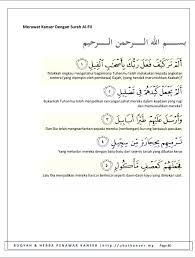 Merawat Kanser Dengan Surah Al-Fil
بسم الله الرحمن الرحيم
أَلَمْ تَرَ كَيْفَ فَعَلَ رَبُّكَ بِأَصْحَٰبِ ٱلْفِيلِ ١
Tidakkah engkau mengetahui bagaimana Tuhanmu telah melakukan kepada angkatan
tentera (yang dipimpin oleh pembawa) Gajah, (yang hendak meruntuhkan Kaabah)?
أَلَمْ يَجْعَلْ كَيْدَهُمْ فِى تَضْلِيلٍ ٢
Bukankah Tuhanmu telah menjadikan rancangan jahat mereka dalam keadaan yang rugi
dan memusnahkan mereka?
وَأَرْسَلَ عَلَيْهِمْ طَيْرًا أَبَابِيلَ ٣
Dan Dia telah menghantarkan kepada mereka (rombongan) burung berpasuk-pasukan,
تَرْمِيهِم بِحِجَارَةٍ مِّن سِجِّيلٍ ٤
Yang melontar mereka dengan batu-batu dari sejenis tanah yang dibakar keras,
فَجَعَلَهُمْ كَعَصْفٍ مَّأْكُولٍ ٥
Lalu Dia menjadikan mereka hancur berkeping-keping seperti daun-daun kayu yang dimakan ulat.
RUQYAH & HERBA PENAWAR KANSER |http://ubatkanser.my Page 80